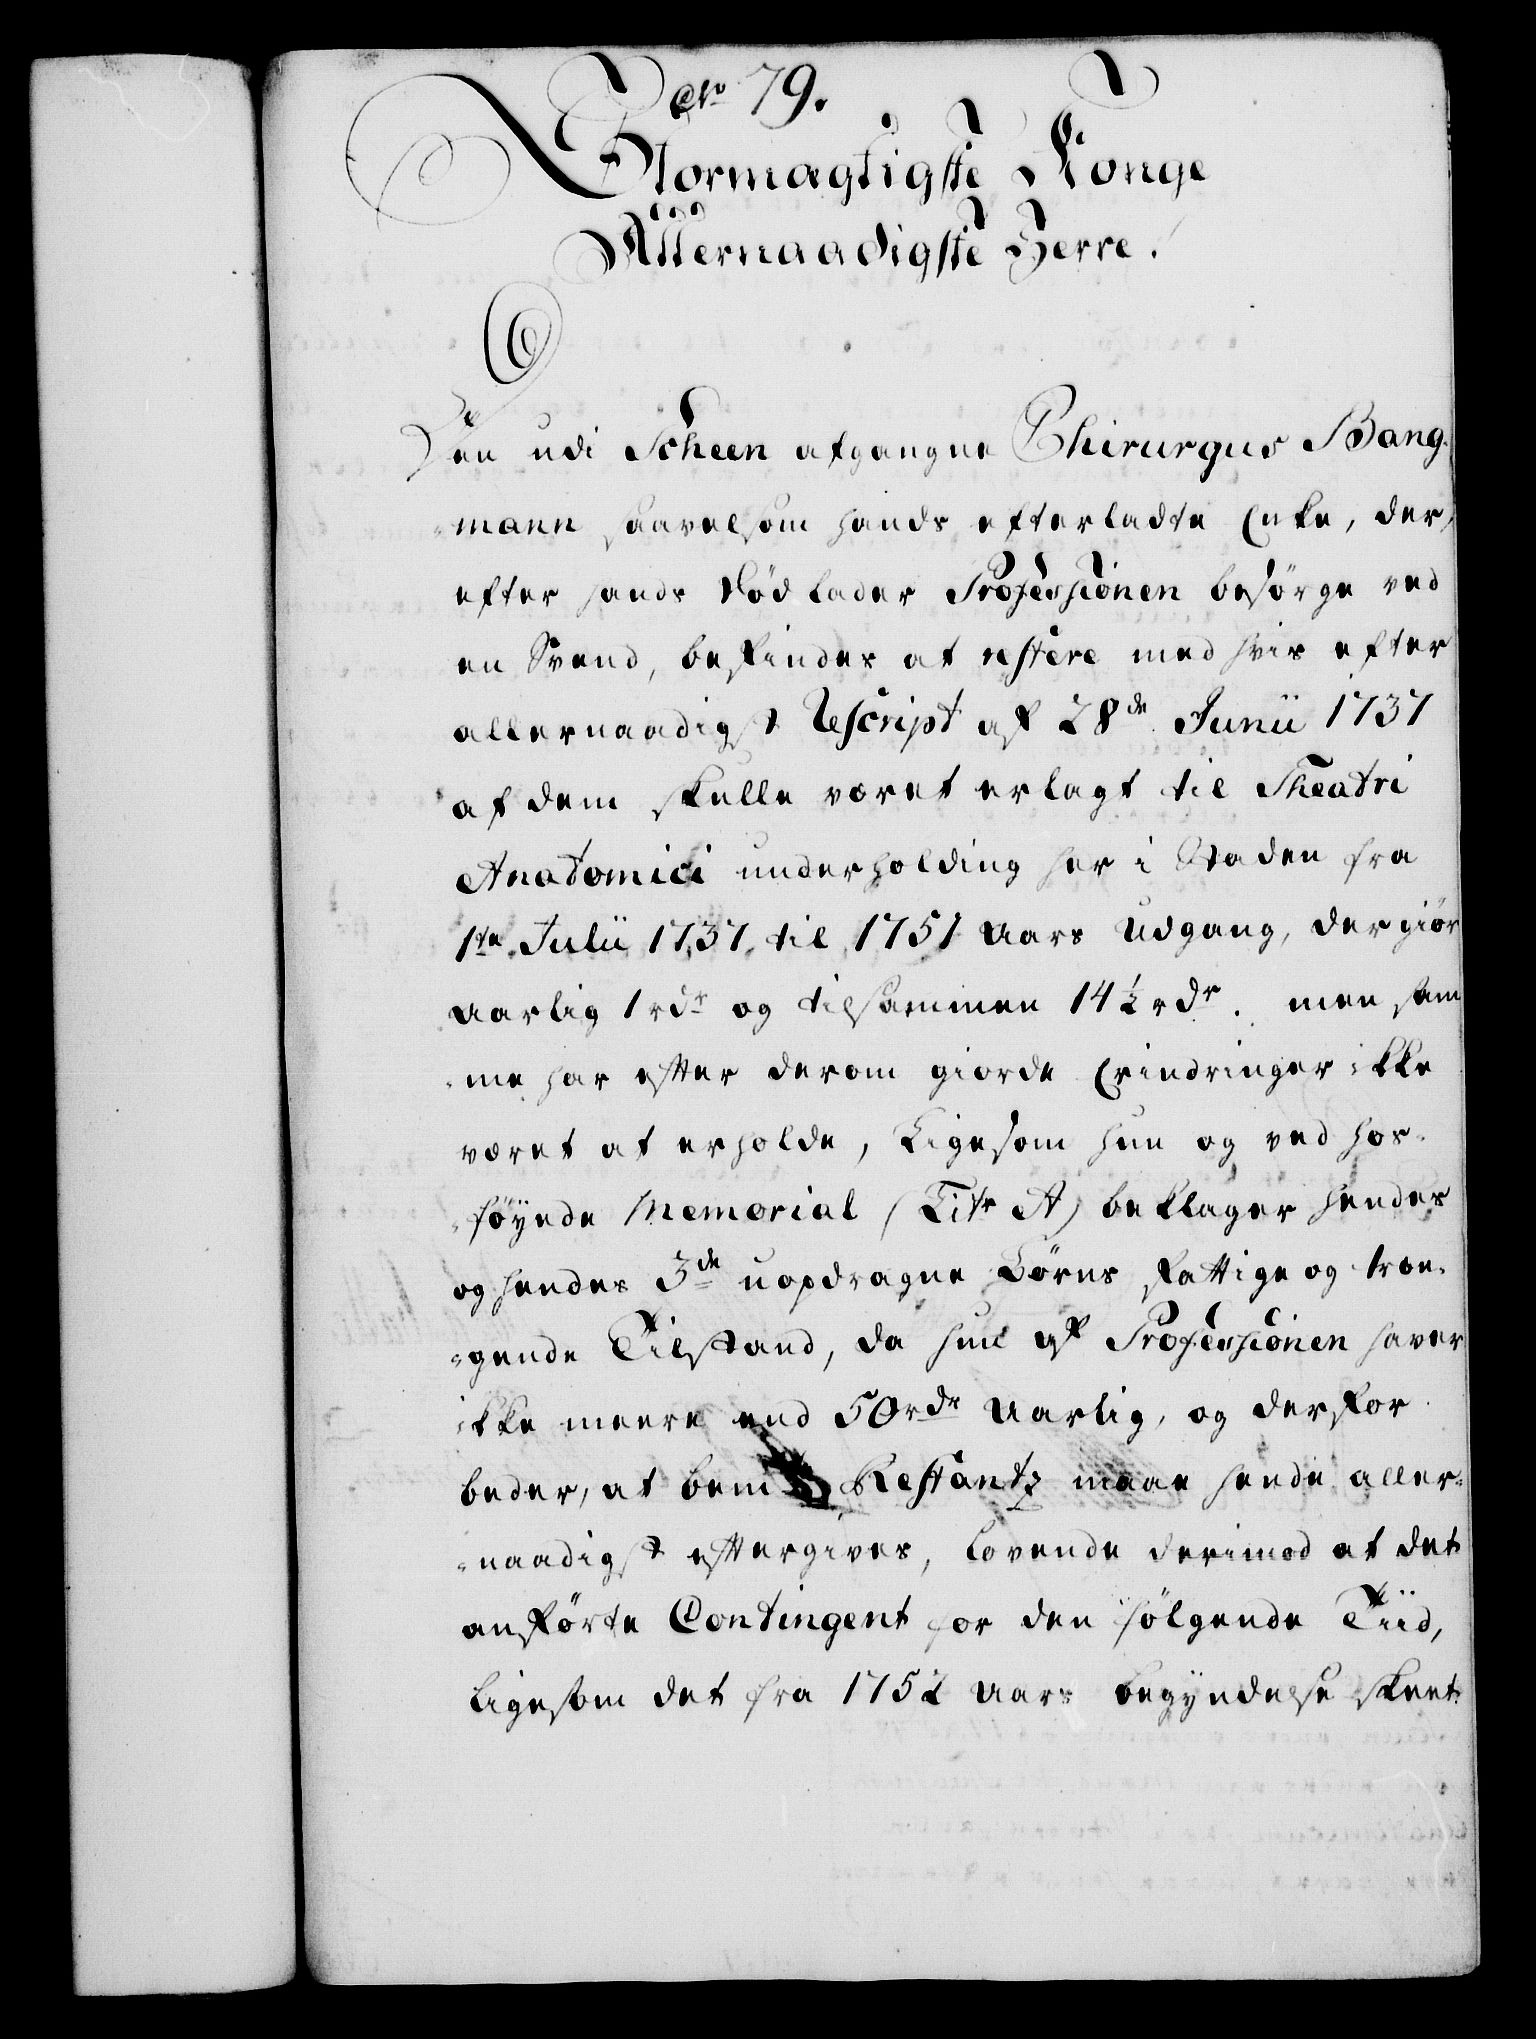 No 79.
Stormægtigste Konge
Allernaadigste Herre!
Den udi Scheen afgangne Chirurgus Bang-
-mann saavelsom hands efterladte Enke, der,
efter hands Død lader Professionen besørge ved
en Svend, befindes at restere med hvis efter
allernaadigst Rescript af 28de Junii 1737
af dem skulle været erlagt til Theatri
Anatomici underholding her i Staden fra
1te Julii 1737 til 1751 Aars Udgang, der giør
Aarlig 1 rdr og tilsammen 14 1/2 rdr. men sam
-me har efter derom giorde Erindringer ikke
været at erholde, Ligesom hun og ved hos-
-føyede Memorial (Litr A) beklager hendes
og hendes 3de uopdragne Børns fattige og træn-
-gende Tilstand, da hun af Professionen haver
ikke meere end 50 rdr Aarlig, og derfor
beder, at bemte Restantz maae hende aller-
-naadigst eftergives, lovende derimod at det
anførte Contingent for den følgende Tiid,
ligesom det fra 1752 Aars begyndelse skeet